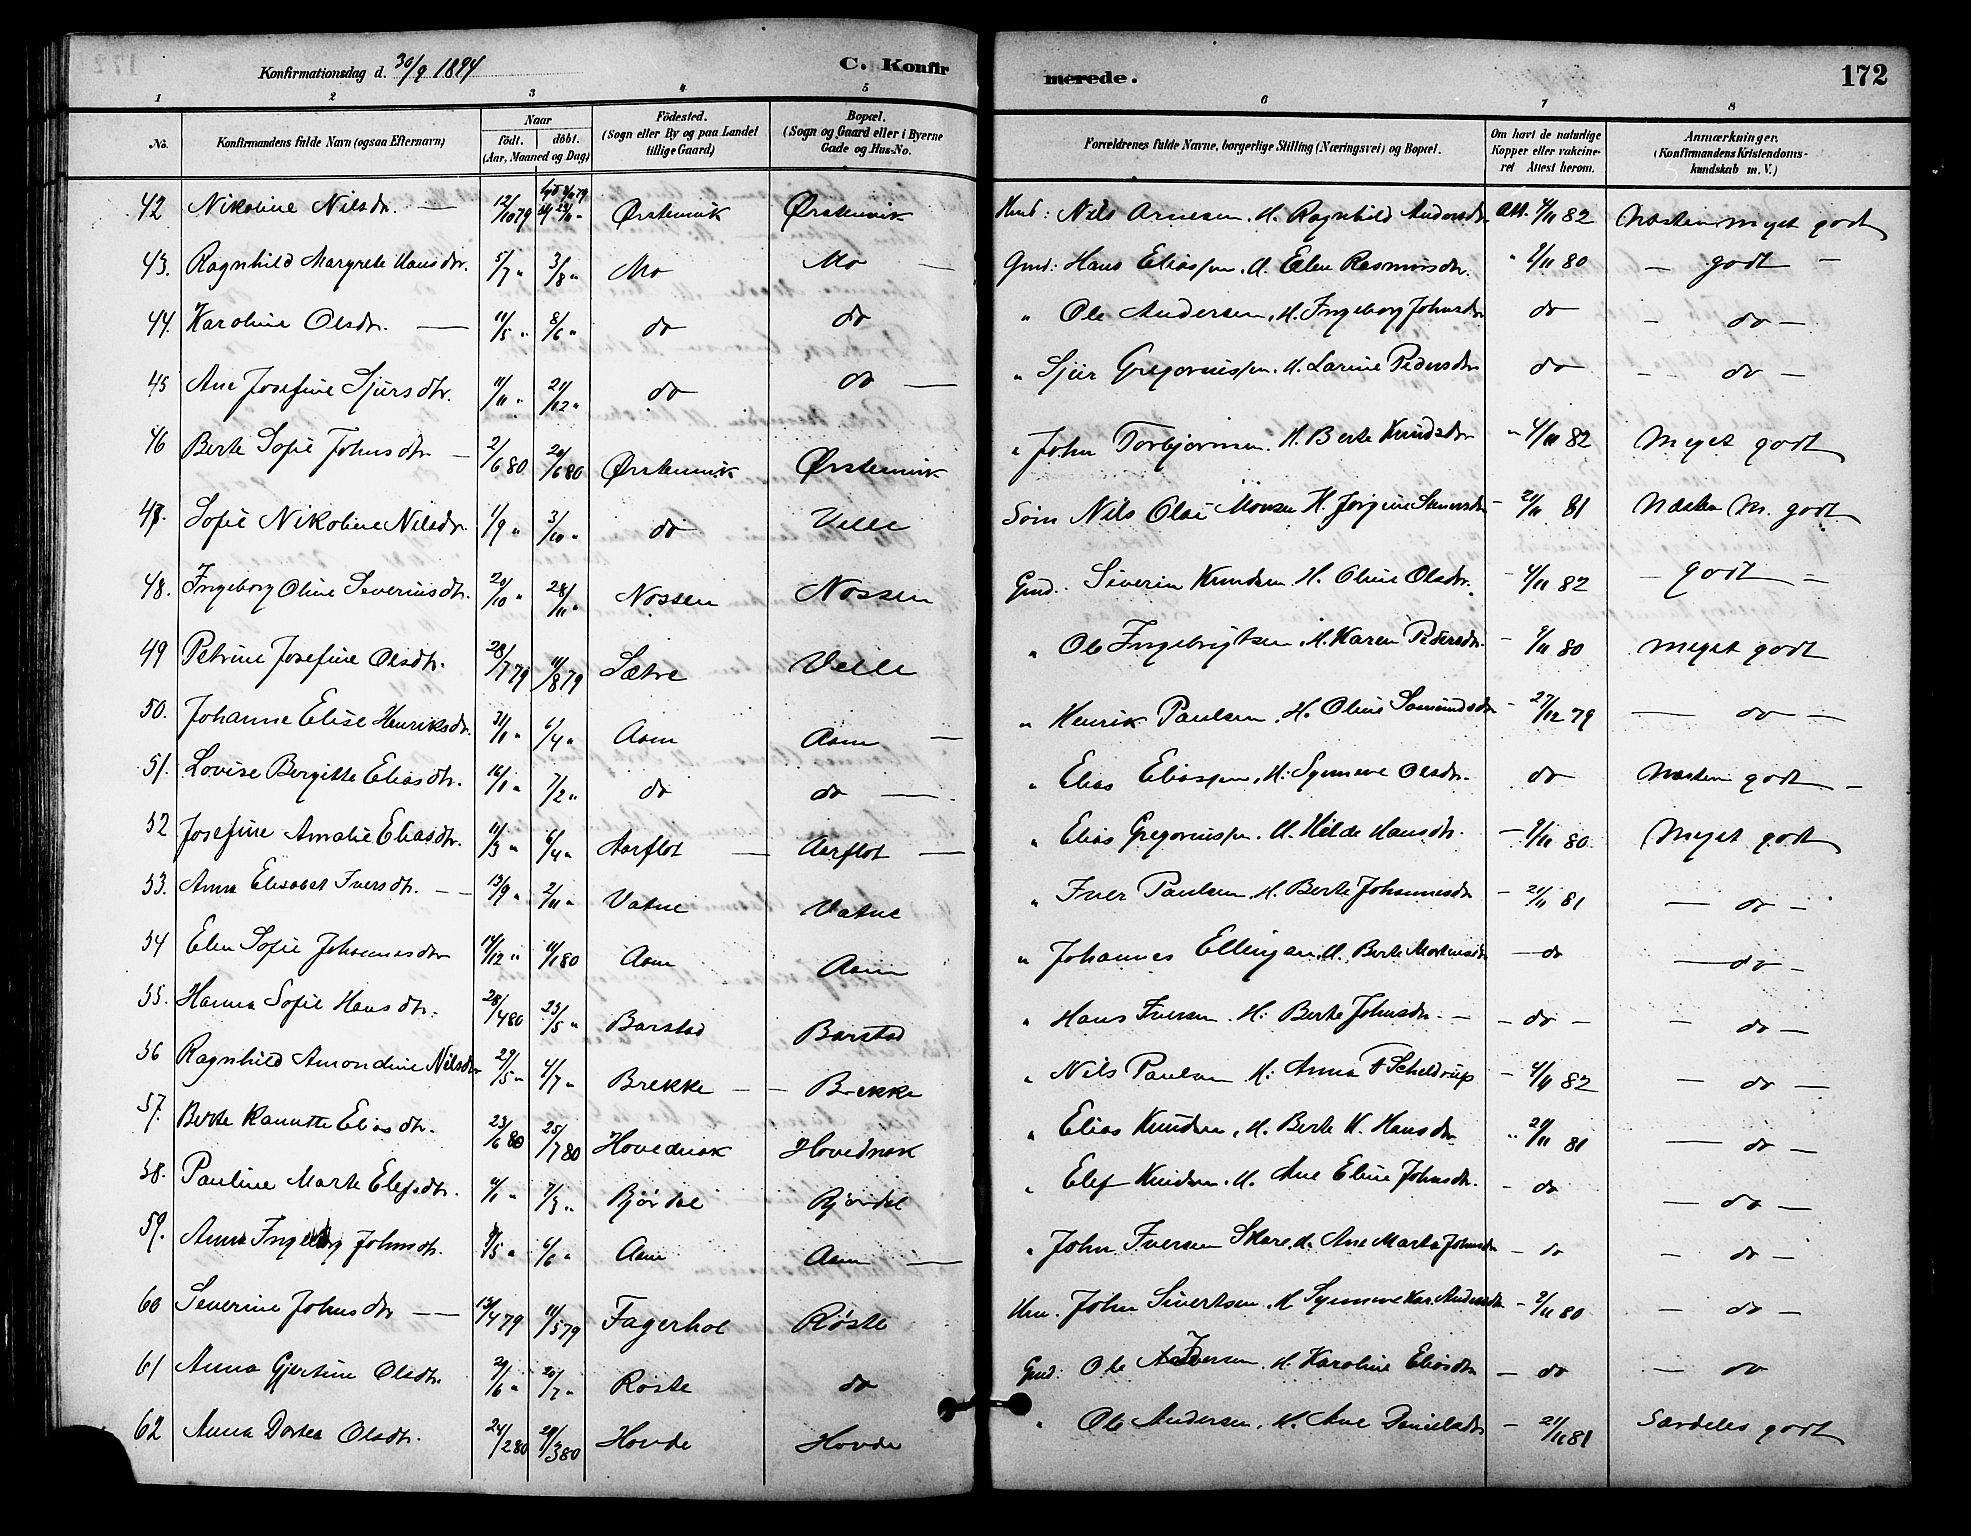 Konfirmationsdag d. 30/9 1894 C. Konfirmerede. 172
1 2 3 4 5 6 7 8
No. Konfirmandens fulde Navn (ogsaa Efternavn) Naar födt. döbt. (Aar, Maaned og Dag) Födested. (Sogn eller By og paa Landet tillige Gaard) Bopæl. (Sogn og Gaard eller i Byerne Gade og Hus-No. Forældrenes fulde Navne, borgerlige Stilling (Næringsvei) og Bopæl. Om havt de naturlige Kopper eller vakcineret Attest herom. Anmærkninger. (Konfirmandens Kristendomskundskab m. V.)
42 Nikoline Nilsdr. — 12/10 79 Ørstenvik Ørstenvik Nils Arnesen, H. Ragnhild Andersdr Att. 4/11 82 Næsten meget godt
43. Ragnhild Margrete Hansdr. 5/7 " 3/8 " Mo Mo — Gmd: Hans Eliassen, H. Elen Rasmusdr. " 9/11 80 — godt —
44. Karoline Olsdr. — 11/5 " 8/6 " do do " Ole Andersen, H. Ingeborg Johnsdr do — do —
45 Ane Josefine Sjursdtr. 11/11 " 21/12 " do do — " Sjur Gregoriussen, H. Larine Pedersdr do — do —
46 Berte Sofie Johnsdtr — 2/6 80 20/6 80 Ørstenvik Ørstenvik " John Torbjørnsen H. Berte Knudsdr " 4/11 82 Meget godt
47. Sofie Nikoline Nilsdr. 1/9 " 3/10 " do Velle Søm Nils Olai Monsen H. Jørgine — 21/11 81 Næsten M. godt
48. Ingeborg Oline Severinsdtr. 20/10 " 28/11 " Nossen Nossen Gmd. Severin Knudsen H. Oline Olsdr. — 4/11 82 — godt —
49 Petrine Josefine Olsdtr. 28/7 79 11/8 79 Sætre Velle " Ole Ingebrigtsen, H. Karen Pedersdr — 9/11 80 Meget godt
50. Johanne Elise Henriksdr. 31/1 " 6/4 " Aam Aam — " Henrik Paulsen, H. Oline — 27/12 79 — do —
51. Lovise Bergitte Eliasdtr. 16/1 " 7/2 " do do — " Elias Eliassen, H. Synneve Olsdr. do Næsten godt —
52 Josefine Amalie Eliasdtr. 11/3 " 6/4 " Aarflot — Aarflot — " Elias Gregoriussen H. Hilde Hansdtr. — 9/11 80 Meget godt
53. Anna Elisabet Iversdtr. — 13/9 " 2/11 " Vatne Vatne " Iver Paulsen H. Berte Johannesdr — 21/11 81 — do —
54 Elen Sofie Johannesdtr 14/12 " 11/1 80 Aam Aam " Johannes Ellingsen, H. Berte Martinusdr — do — do —
55. Hanna Sofie Hansdtr. 28/4 80 23/5 " Barstad Barstad " Hans Iversen H: Berte Johnsdr — — do — — do —
56 Ragnhild Amondine Nilsdr 29/5 " 4/7 " Brekke — Brekke " Nils Paulsen H: Anna F Scheldrup — 4/11 82 — do —
57. Berte Kanutte Eliasdtr. 23/6 80 25/7 80 Hovednak Hovednak " Elias Knudsen, H. Berte K. Hansdr " 21/11 81 — do —
58. Pauline Marte Elefsdtr. 4/1 " 7/3 " Bjørdal Bjørdal " Elef Knudsen H. Ane Eline Johnsdtr. — do — do —
59. Anna Ingeborg Johnsdtr. 8/5 " 6/6 " Aam Aam — " John Iversen Skare, H. Ane Marta Johnsdr — do — do —
60 Severine Johnsdtr — 13/4 79 11/5 79 Fagerhol Røste John Sivertsen, H Synneve Kar. Andersdtr — 9/11 80 — do —
61 Anna Gjertine Olsdtr. 21/6 " 20/7 " Røste do Gmd: Ole Iversen, H. Karoline Eliasdtr — do — do
62 Anna Dortea Olsdtr. 24/2 80 29/3 80 Hovde Hovde " Ole Andersen, H. Ane Danielsdtr — 21/11 81 Særdeles godt